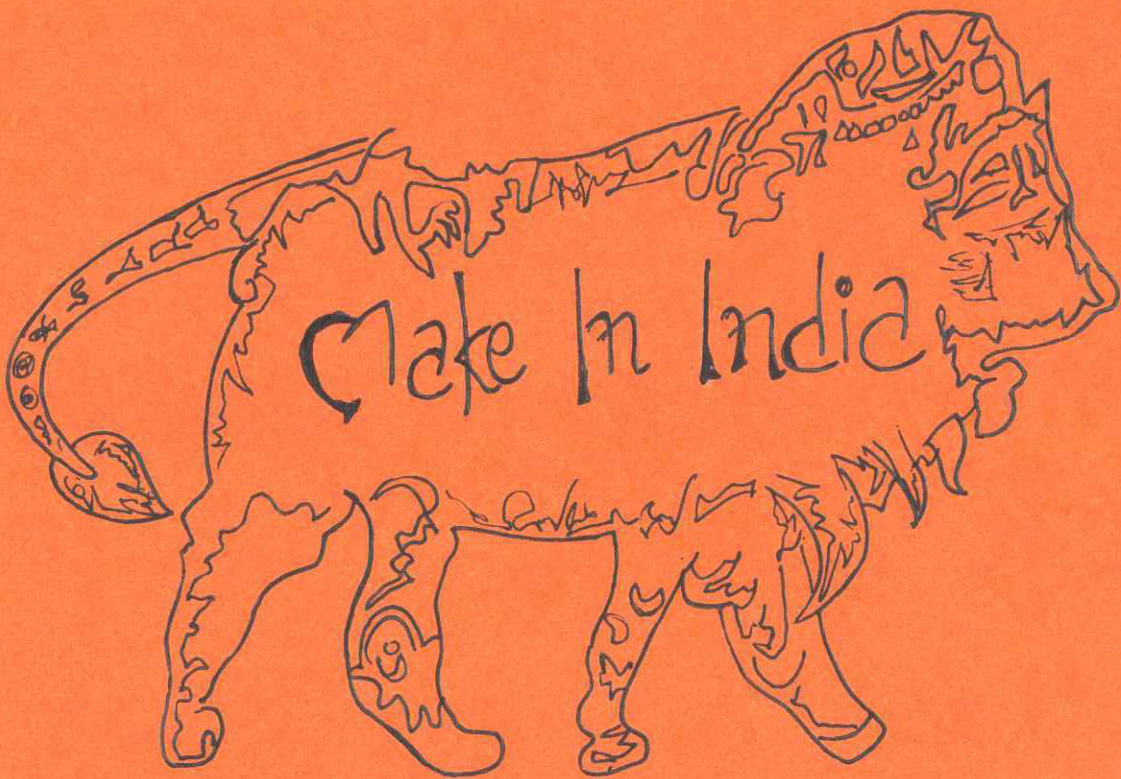 Make In India